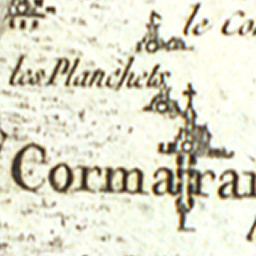 le Co
les Planchets
Cormatran